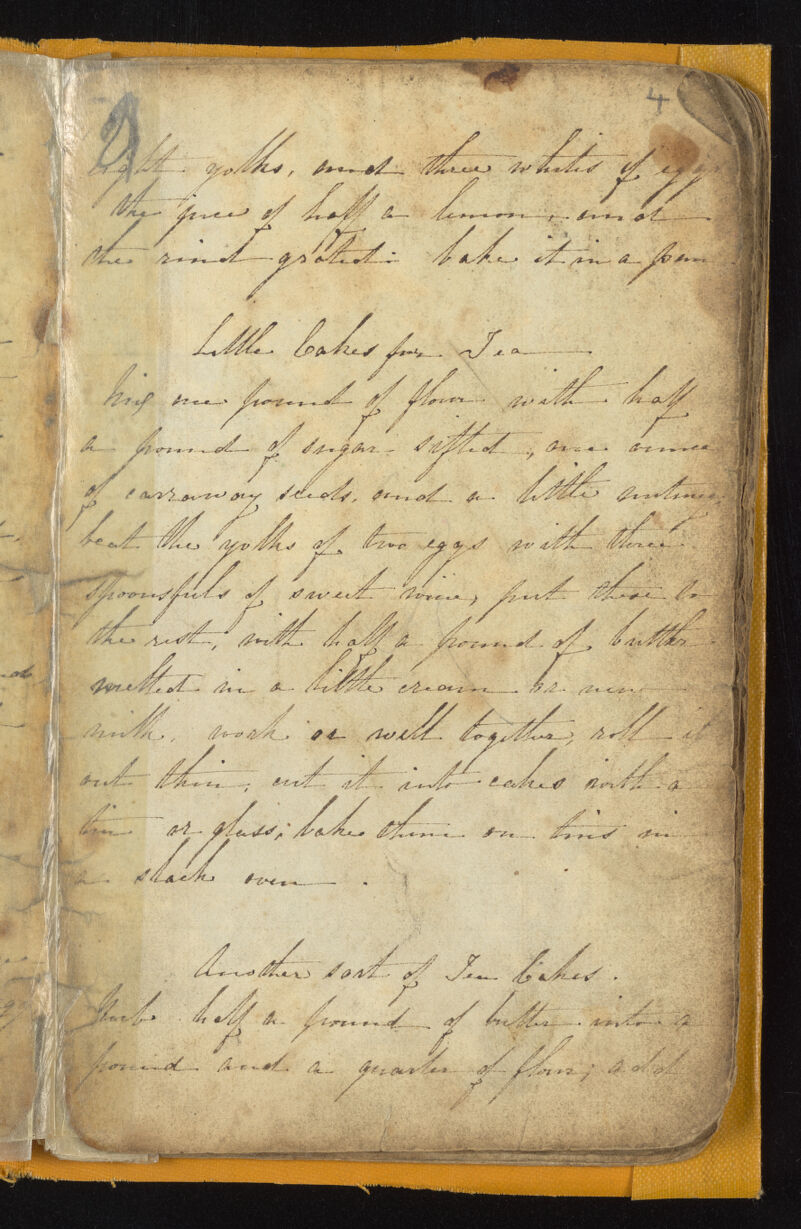 4
eight yolks, and three whites of eggs
the juce of half a lemon, and
the rind grated: bake it in a pan
Little Cakes for Tea
Mix one pound of flour with half
a pound of sugar sifted, one ounce
of carraway seeds, and a little nutmeg
beat the yolks of two eggs with three
spoonsfuls of sweet wine, put these to
the rest, with half a pound of butter
melted in a little cream or new
milk, work or well together, roll it
out thin, cut it into cakes with a
tin or glass; bake them on tins in
a slack oven.
Another sort of Tea Cakes.
Rub half a pound of butter into a
pound and a quarter of flour; add